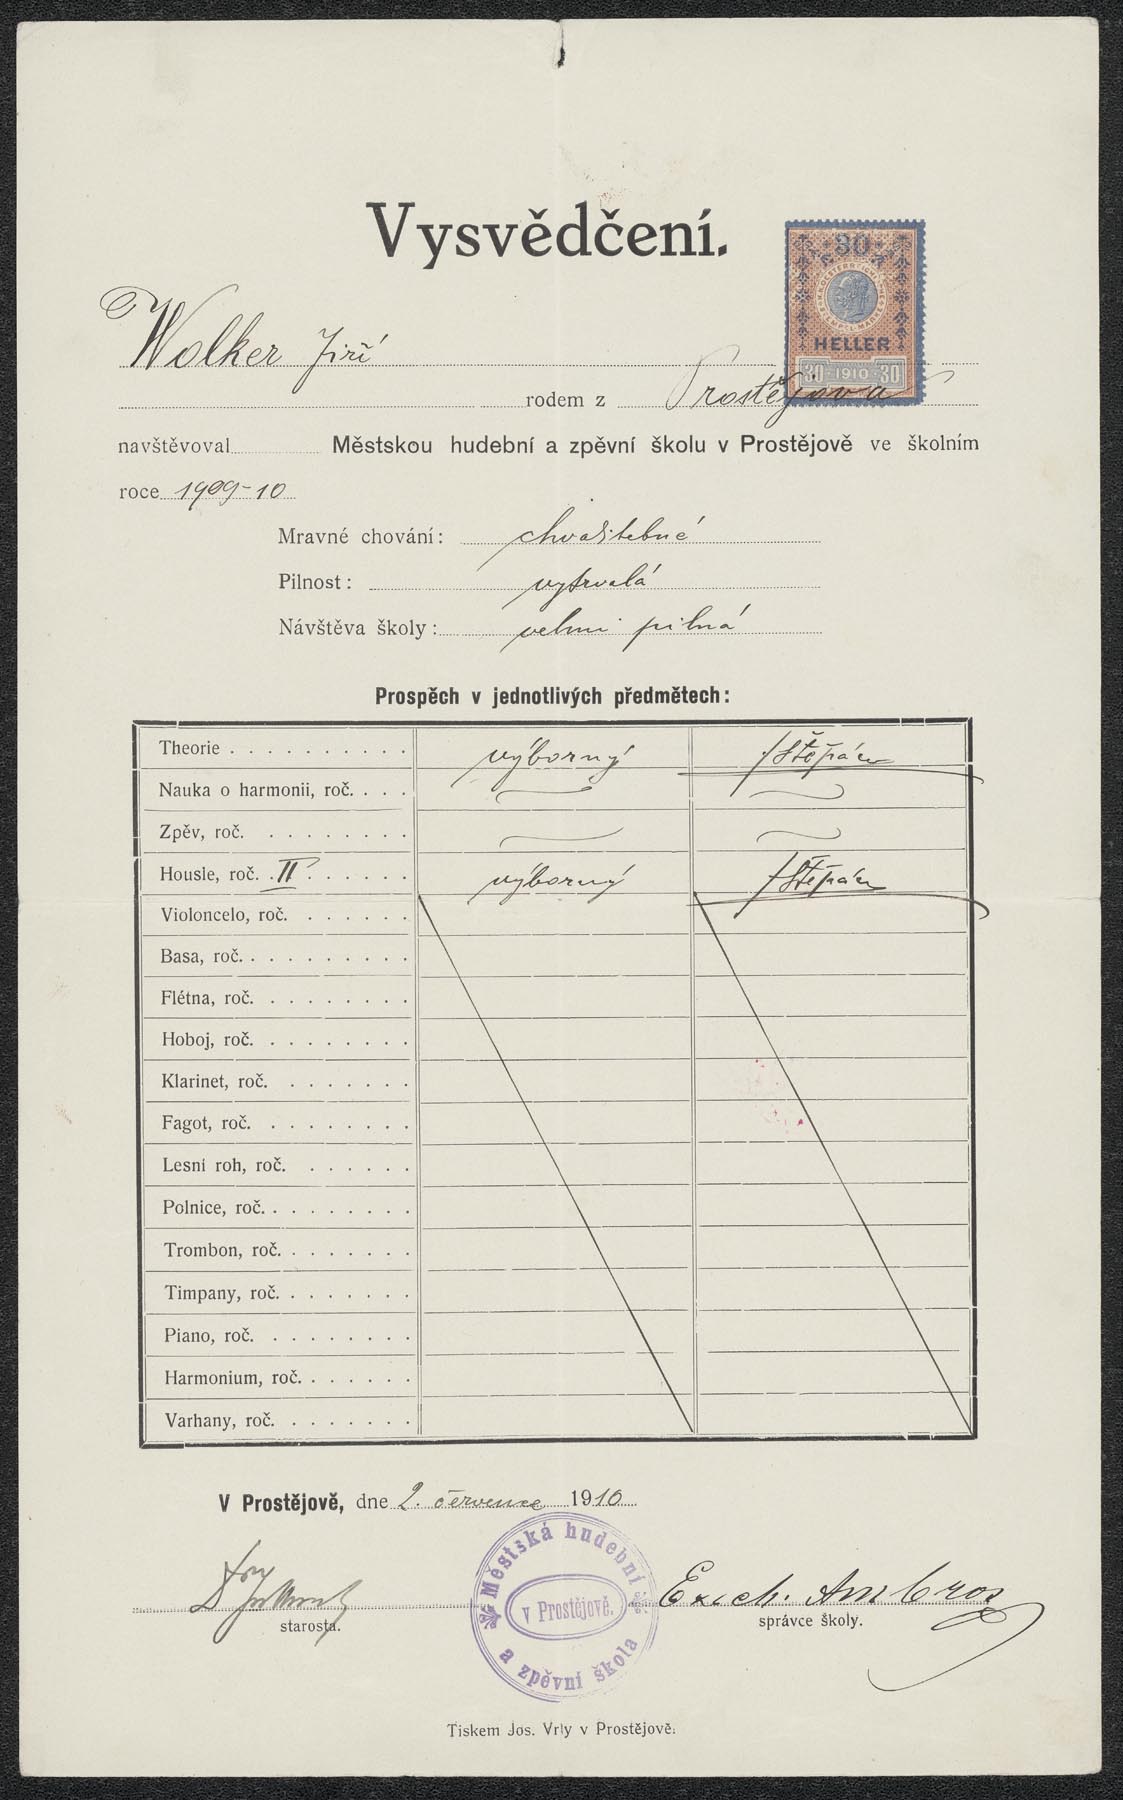 Vysvědčení.
30
HELLER
30 1910 30
Wolker Jiří
rodem z Prostějova
navštěvoval Městskou hudební a zpěvní školu v Prostějově ve školním
roce 1909-10
Mravné chování: chvalitebné
Pilnost: vytrvalá
Návštěva školy: velmi pilná
Prospěch v jednotlivých předmětech:
Theorie výborný Štěpán
Nauka o harmonii, roč.
Zpěv, roč.
Housle, roč. II výborný Štěpán
Violoncelo, roč.
Basa, roč.
Flétna, roč.
Hoboj, roč.
Klarinet, roč.
Fagot, roč.
Lesní roh, roč.
Polnice, roč.
Trombon, roč.
Timpany, roč.
Piano, roč.
Harmonium, roč.
Varhany, roč.
V Prostějově, dne 2. července 1910
Městská hudební
v Prostějově.
a zpěvní škola
Ezech. Ambros
starosta. správce školy.
Tiskem Jos. Vrly v Prostějově.